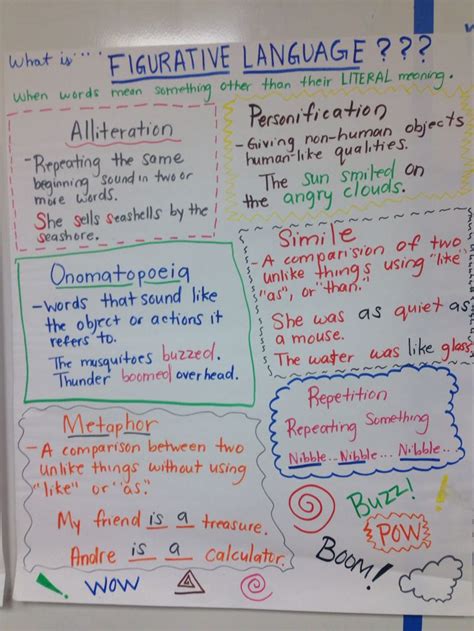 What is.... FIGURATIVE LANGUAGE ? ? ?
When words mean something other than their LITERAL meaning.
Alliteration
- Repeating the same
beginning sound in two or
more words.
She sells seashells by the
seashore.
Personification
- Giving non-human objects
human-like qualities.
The sun smiled on
the angry clouds.
Onomatopoeia
- Words that sound like
the object or actions it
refers to.
The musquitoes buzzed.
Thunder boomed overhead.
Simile
- A comparision of two
unlike things using "like"
"as", or "than."
She was as quiet as
a mouse.
The water was like glass.
Metaphor
- A comparison between two
unlike things without using
"like" or "as."
My friend is a treasure.
Andre is a calculator.
Repetition
Repeating Something
Nibble... Nibble... Nibble...
Buzz!
POW
BOOM!
! WOW